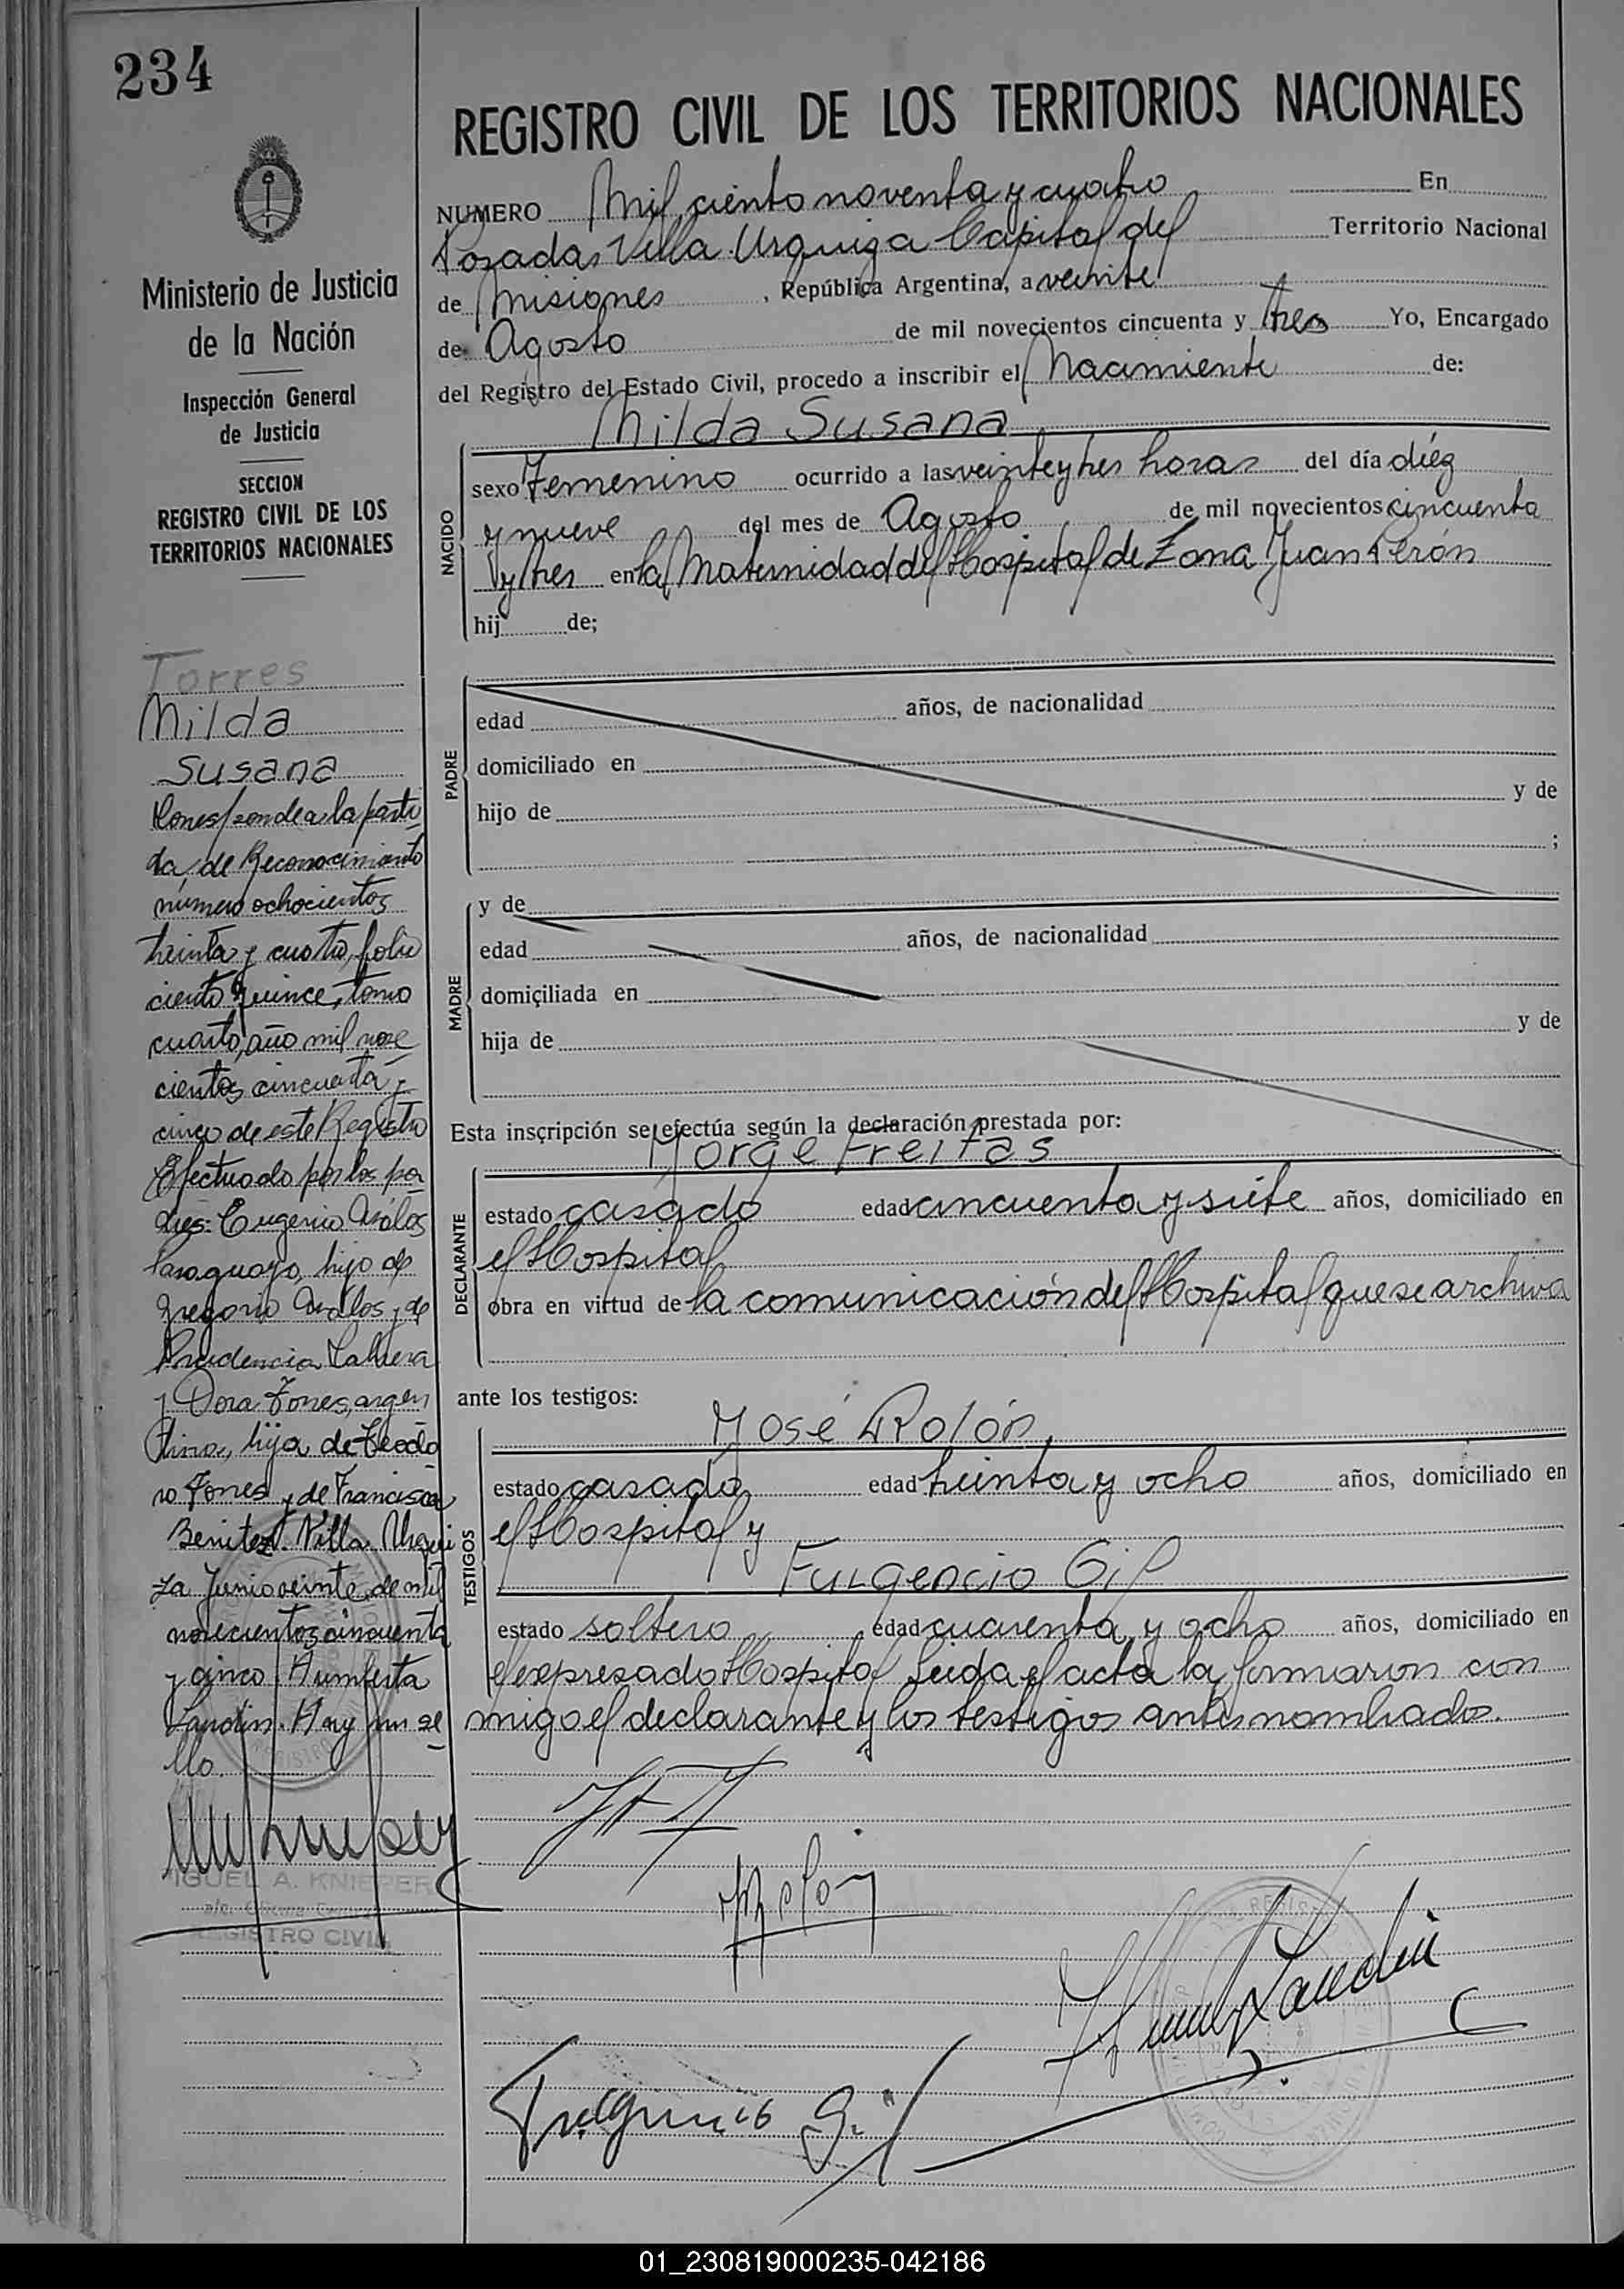 234
Ministerio de Justicia
de la Nación
Inspección General
de Justicia
SECCION
REGISTRO CIVIL DE LOS
TERRITORIOS NACIONALES
Torres
Nilda
Susana
Corresponde a la parti
da, de Reconocimiento
número ochocientos
treinta y cuatro, folio
ciento quince, tomo
cuarto, año mil nove
cientos cincuenta y
cinco de este Registro
Efectuado por los pa
dres: Eugenio Avalos
Paraguayo, hijo de
Gregorio Avalos y de
Prudencia
y Dora Torres, argen
tina, hija de Teodo
ro Torres y de Francisca
Benitez. Villa Urqui
za Junio veinte de mil
novecientos cincuenta
y cinco. Humberta
Landin. Hay un se
llo.
MIGUEL A. KNIEPER
REGISTRO CIVIL
REGISTRO CIVIL DE LOS TERRITORIOS NACIONALES
NUMERO Mil ciento noventa y cuatro En
Posadas Villa Urquiza Capital del Territorio Nacional
de Misiones, República Argentina, a veinte
de Agosto de mil novecientos cincuenta y tres Yo, Encargado
del Registro del Estado Civil, procedo a inscribir el Nacimiento de:
Nilda Susana
NACIDO
sexo Femenino ocurrido a las veinte y tres horas del día diéz
y nueve del mes de Agosto de mil novecientos cincuenta
y tres en la Maternidad del Hospital de Zona Juan Perón
hij de;
PADRE
edad años, de nacionalidad
domiciliado en
hijo de y de
;
MADRE
y de
edad años, de nacionalidad
domiciliada en
hija de y de
Esta inscripción se efectúa según la declaración prestada por:
Jorge Freitas
DECLARANTE
estado casado edad cincuenta y siete años, domiciliado en
el Hospital
obra en virtud de la comunicación del Hospital que se archiva
ante los testigos:
José Rolón
TESTIGOS
estado casado edad treinta y ocho años, domiciliado en
el Hospital y
Fulgencio Gil
estado soltero edad cuarenta y ocho años, domiciliado en
el expresado Hospital Leida el acta la firmaron con
migo el declarante y los testigos antes nombrados.
Fulgencio Gil
01_230819000235-042186